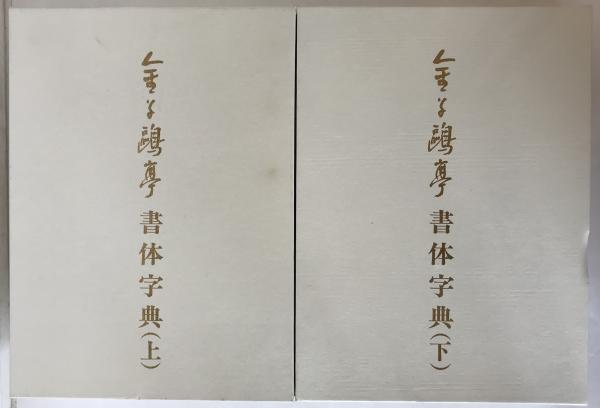 金子鷗亭書体字典(上)
金子鷗亭書体字典(下)